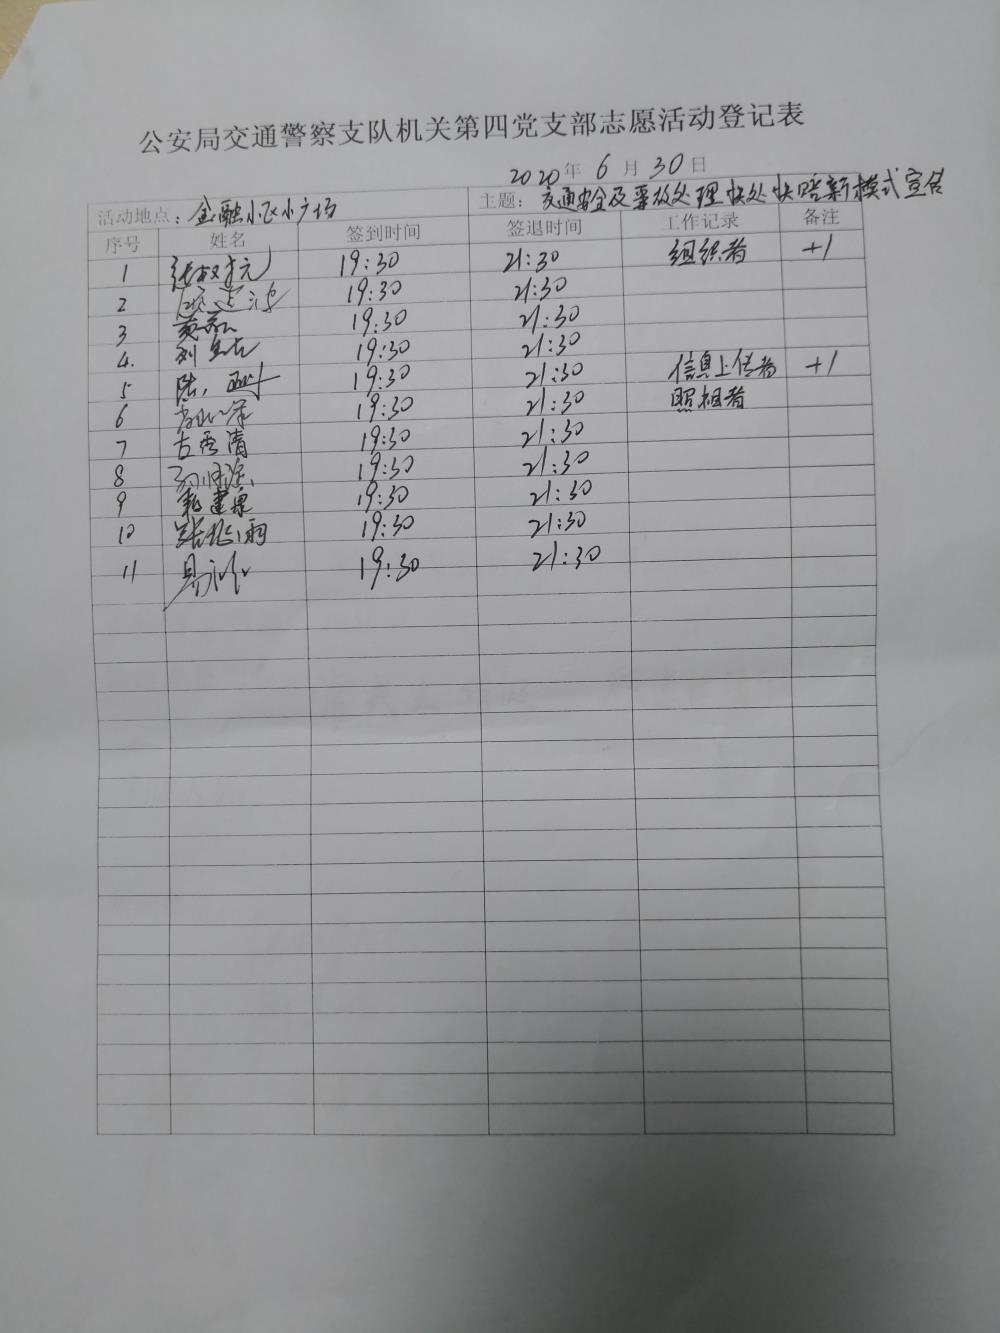 公安局交通警察支队机关第四党支部志愿活动登记表
2020年 6 月 30 日
活动地点：金融小区小广场 主题：交通安全及事故处理快处快赔新模式宣传
序号 姓名 签到时间 签退时间 工作记录 备注
1 19:30 21:30 组织者 +1
2 19:30 21:30
3 黄 19:30 21:30
4. 刘 19:30 21:30
5 陆 19:30 21:30 信息上传者 +1
6 19:30 21:30 照相者
7 古秀清 19:30 21:30
8 19:30 21:30
9 建泉 19:30 21:30
10 张 雨 19:30 21:30
11 易 19:30 21:30